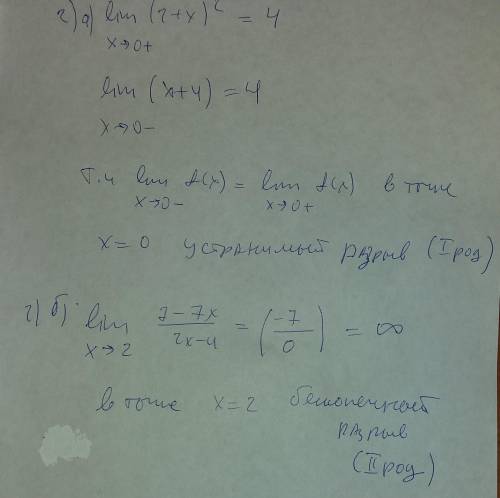 2) a) lim (2+x)² = 4
x→0+
lim (x+4) = 4
x→0-
т.к lim f(x) = lim f(x) в точке
x→0- x→0+
x=0 устранимый разрыв (I род)
2) б) lim (7-7x)/(2x-4) = (-7/0) = ∞
x→2
в точке x=2 бесконечный
разрыв
(II род)